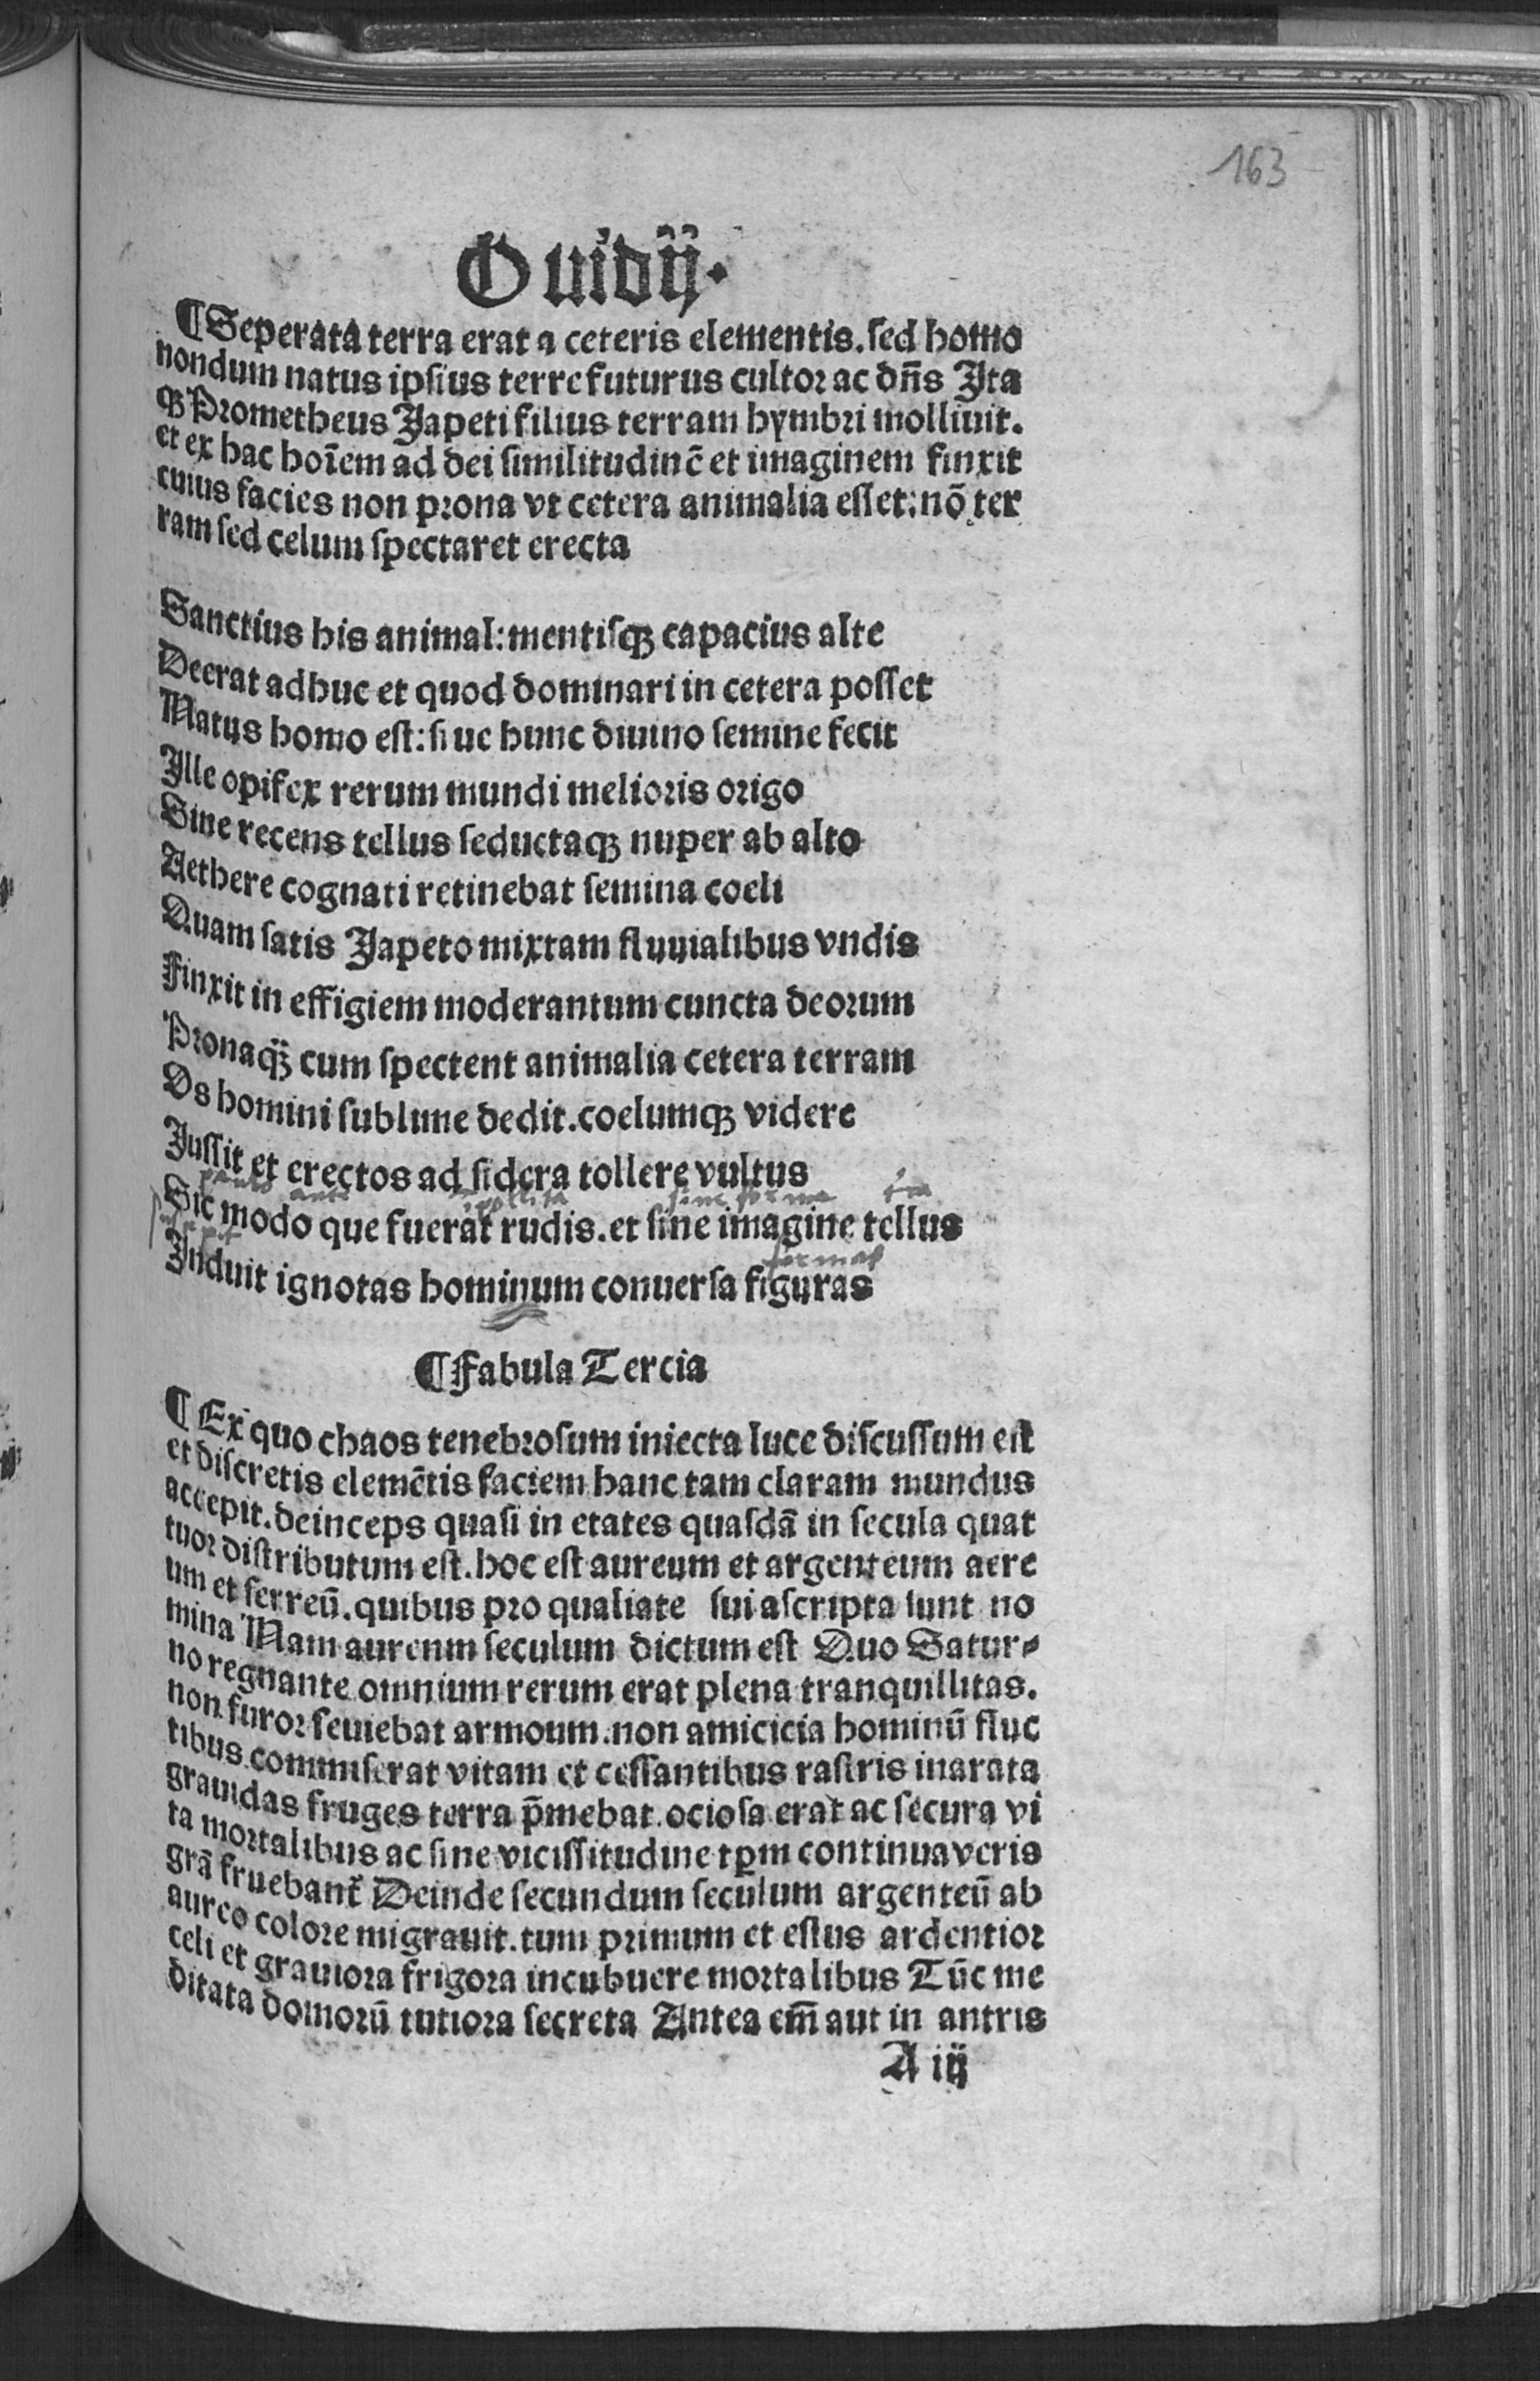 163
Ouidij.
¶Seperata terra erat a ceteris elementis. sed homo
nondum natus ipsius terre futurus cultor ac dn̄s Ita
qꝫ Prometheus Iapeti filius terram hymbri molliuit.
et ex hac hoīem ad dei similitudinē et imaginem finxit
cuius facies non prona vt cetera animalia esset: nō ter
ram sed celum spectaret erecta
Sanctius his animal: mentisqꝫ capacius alte
Deerat adhuc et quod dominari in cetera posset
Natus homo est: siue hunc diuino semine fecit
Ille opifex rerum mundi melioris origo
Siue recens tellus seductaqꝫ nuper ab alto
Aethere cognati retinebat semina coeli
Quam satis Iapeto mixtam fluuialibus vndis
Finxit in effigiem moderantum cuncta deorum
Pronaqꝫ cum spectent animalia cetera terram
Os homini sublime dedit. coelumqꝫ videre
Iussit et erectos ad sidera tollere vultus
paulo ante impolita sine forma
Sic modo que fuerat rudis. et sine imagine tellus
formas
Induit ignotas hominum conuersa figuras
¶Fabula Tercia
¶Ex quo chaos tenebrosum iniecta luce discussum est
et discretis elemētis faciem hanc tam claram mundus
accepit. deinceps quasi in etates quasdā in secula quat
tuor distributum est. hoc est aureum et argenteum aere
um et ferreū. quibus pro qualiate sui ascripta sunt no
mina Nam aurenm seculum dictum est Quo Satur⸗
no regnante omnium rerum erat plena tranquillitas.
non furor seuiebat armoum. non amicicia hominū fluc
tibus commiserat vitam et cessantibus rastris inarata
grauidas fruges terra p̄mebat. ociosa erat ac secura vi
ta mortalibus ac sine vicissitudine tꝑm continua veris
grā fruebant᷑ Deinde secundum seculum argenteū ab
aureo colore migrauit. tum primum et estus ardentior
celi et grauiora frigora incubuere mortalibus Tūc me
ditata domorū tutiora secreta Antea em̄ aut in antris
A iij